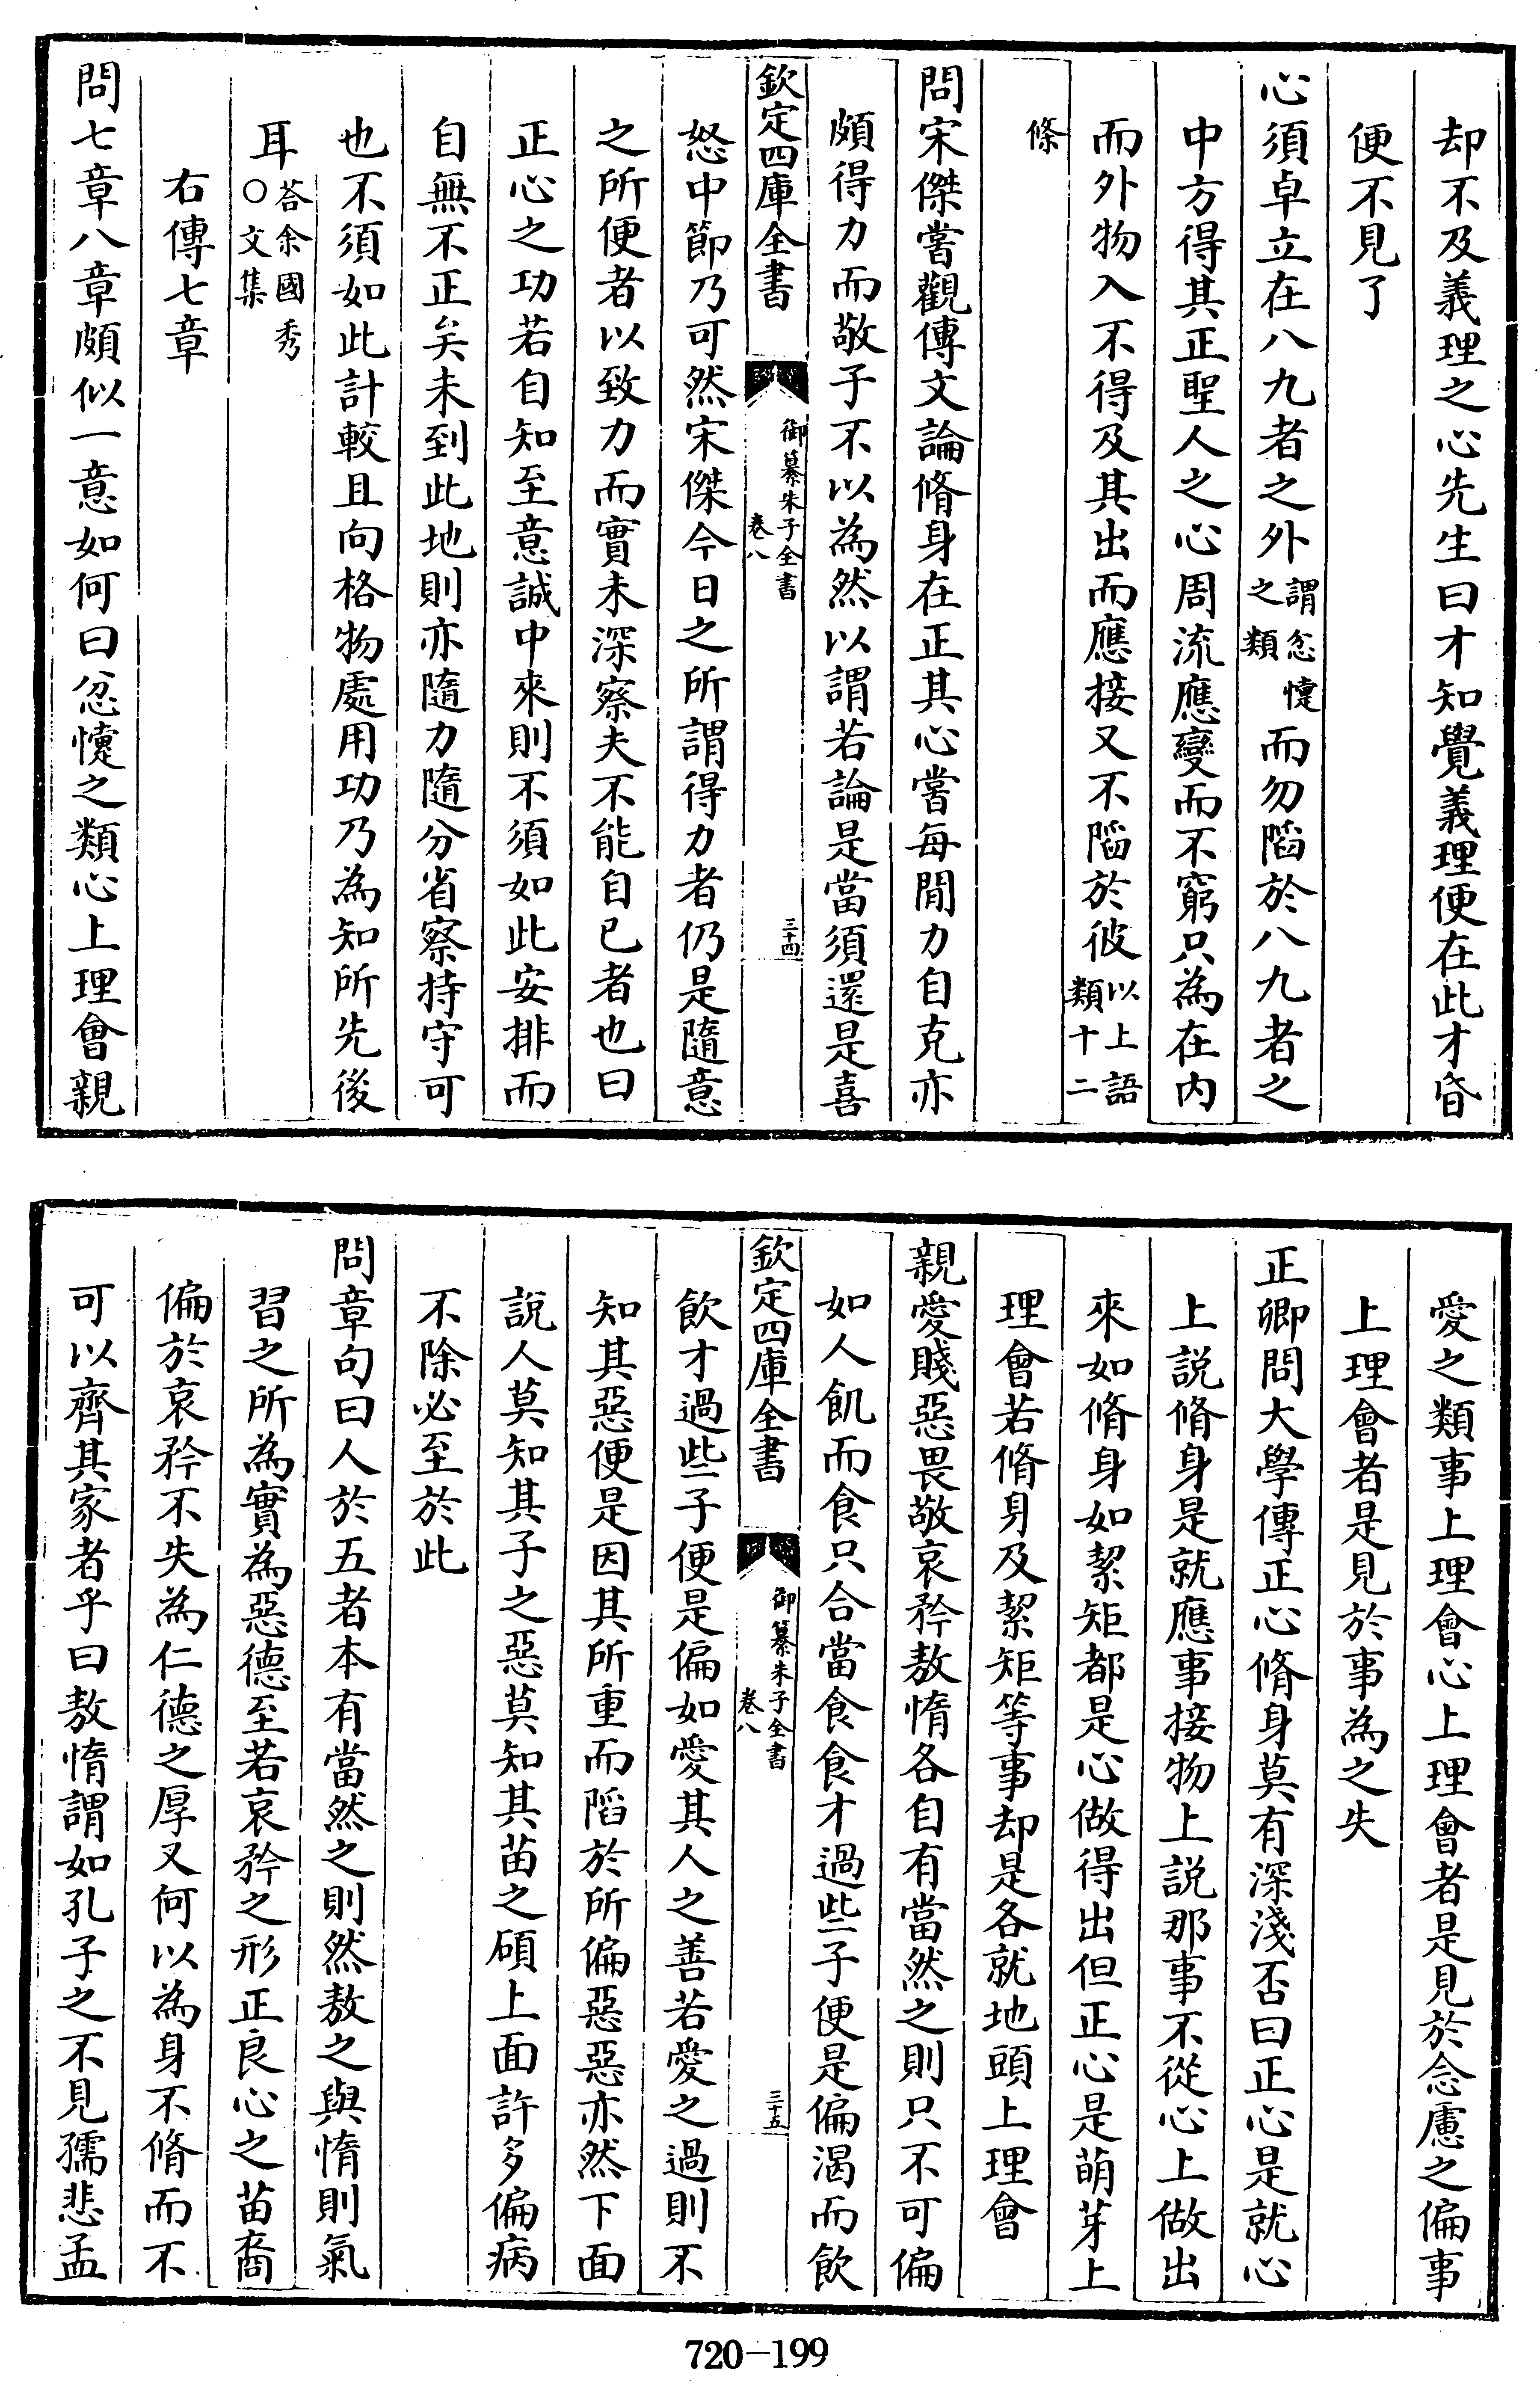 却不及義理之心先生曰才知覺義理便在此才昏
便不見了
心須卓立在八九者之外謂忿懥之類而勿䧟於八九者之
中方得其正聖人之心周流應變而不窮只為在内
而外物入不得及其出而應接又不䧟於彼以上語類十二
條
問宋傑嘗觀傳文論脩身在正其心嘗每閒力自克亦
頗得力而敬子不以為然以謂若論是當須還是喜
欽定四庫全書
御纂朱子全書
卷八
三十四
怒中節乃可然宋傑今日之所謂得力者仍是隨意
之所便者以致力而實未深察夫不能自已者也曰
正心之功若自知至意誠中來則不須如此安排而
自無不正矣未到此地則亦隨力隨分省察持守可
也不須如此計較且向格物處用功乃為知所先後
耳答余國秀○文集
右傳七章
問七章八章頗似一意如何曰忿懥之類心上理會親
愛之類事上理會心上理會者是見於念慮之偏事
上理會者是見於事為之失
正卿問大學傳正心脩身莫有深淺否曰正心是就心
上説脩身是就應事接物上説那事不從心上做出
來如脩身如絜矩都是心做得出但正心是萌芽上
理會若脩身及絜矩等事却是各就地頭上理會
親愛賤惡畏敬哀矜敖惰各自有當然之則只不可偏
如人飢而食只合當食食才過些子便是偏渴而飲
欽定四庫全書
御纂朱子全書
卷八
三十五
飲才過些子便是偏如愛其人之善若愛之過則不
知其惡便是因其所重而陷於所偏惡惡亦然下面
說人莫知其子之惡莫知其苗之碩上面許多偏病
不除必至於此
問章句曰人於五者本有當然之則然敖之與惰則氣
習之所為實為惡德至若哀矜之形正良心之苗裔
偏於哀矜不失為仁德之厚又何以為身不脩而不
可以齊其家者乎曰敖惰謂如孔子之不見孺悲孟
720-199